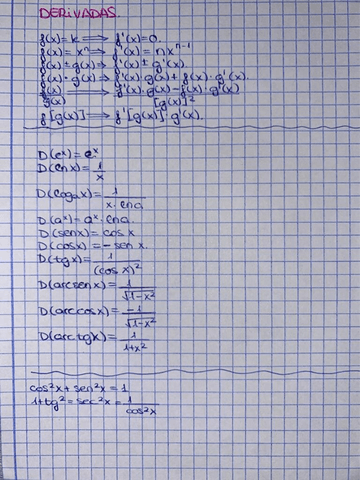 DERIVADAS.
f(x)=k ⟹ f'(x)=0.
f(x)=xⁿ ⟹ f'(x)=nxⁿ⁻¹
f(x)±g(x) ⟹ f'(x)±g'(x)
f(x)·g(x) ⟹ f'(x)·g(x)+f(x)·g'(x).
f(x)/g(x) ⟹ f'(x)·g(x)-f(x)·g'(x)/[g(x)]²
f[g(x)] ⟹ f'[g(x)]·g'(x).
D(eˣ)=eˣ
D(lnx)=1/x
D(logₐx)=1/x·lna
D(aˣ)=aˣ·lna.
D(senx)=cosx
D(cosx)=-senx.
D(tgx)=1/(cosx)²
D(arcsenx)=1/√1-x²
D(arccosx)=-1/√1-x²
D(arctgx)=1/1+x²
cos²x+sen²x=1
1+tg²=sec²x=1/cos²x